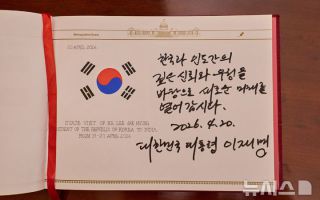 20 APRIL 2026
STATE VISIT OF MR. LEE JAE MYUNG
PRESIDENT OF THE REPUBLIC OF KOREA TO INDIA
FROM 19-21 APRIL 2026
한국과 인도간의
깊은 신뢰와 우정을
바탕으로 새로운 미래를
열어 갑시다.
2026. 4. 20.
대한민국 대통령 이재명
뉴시스